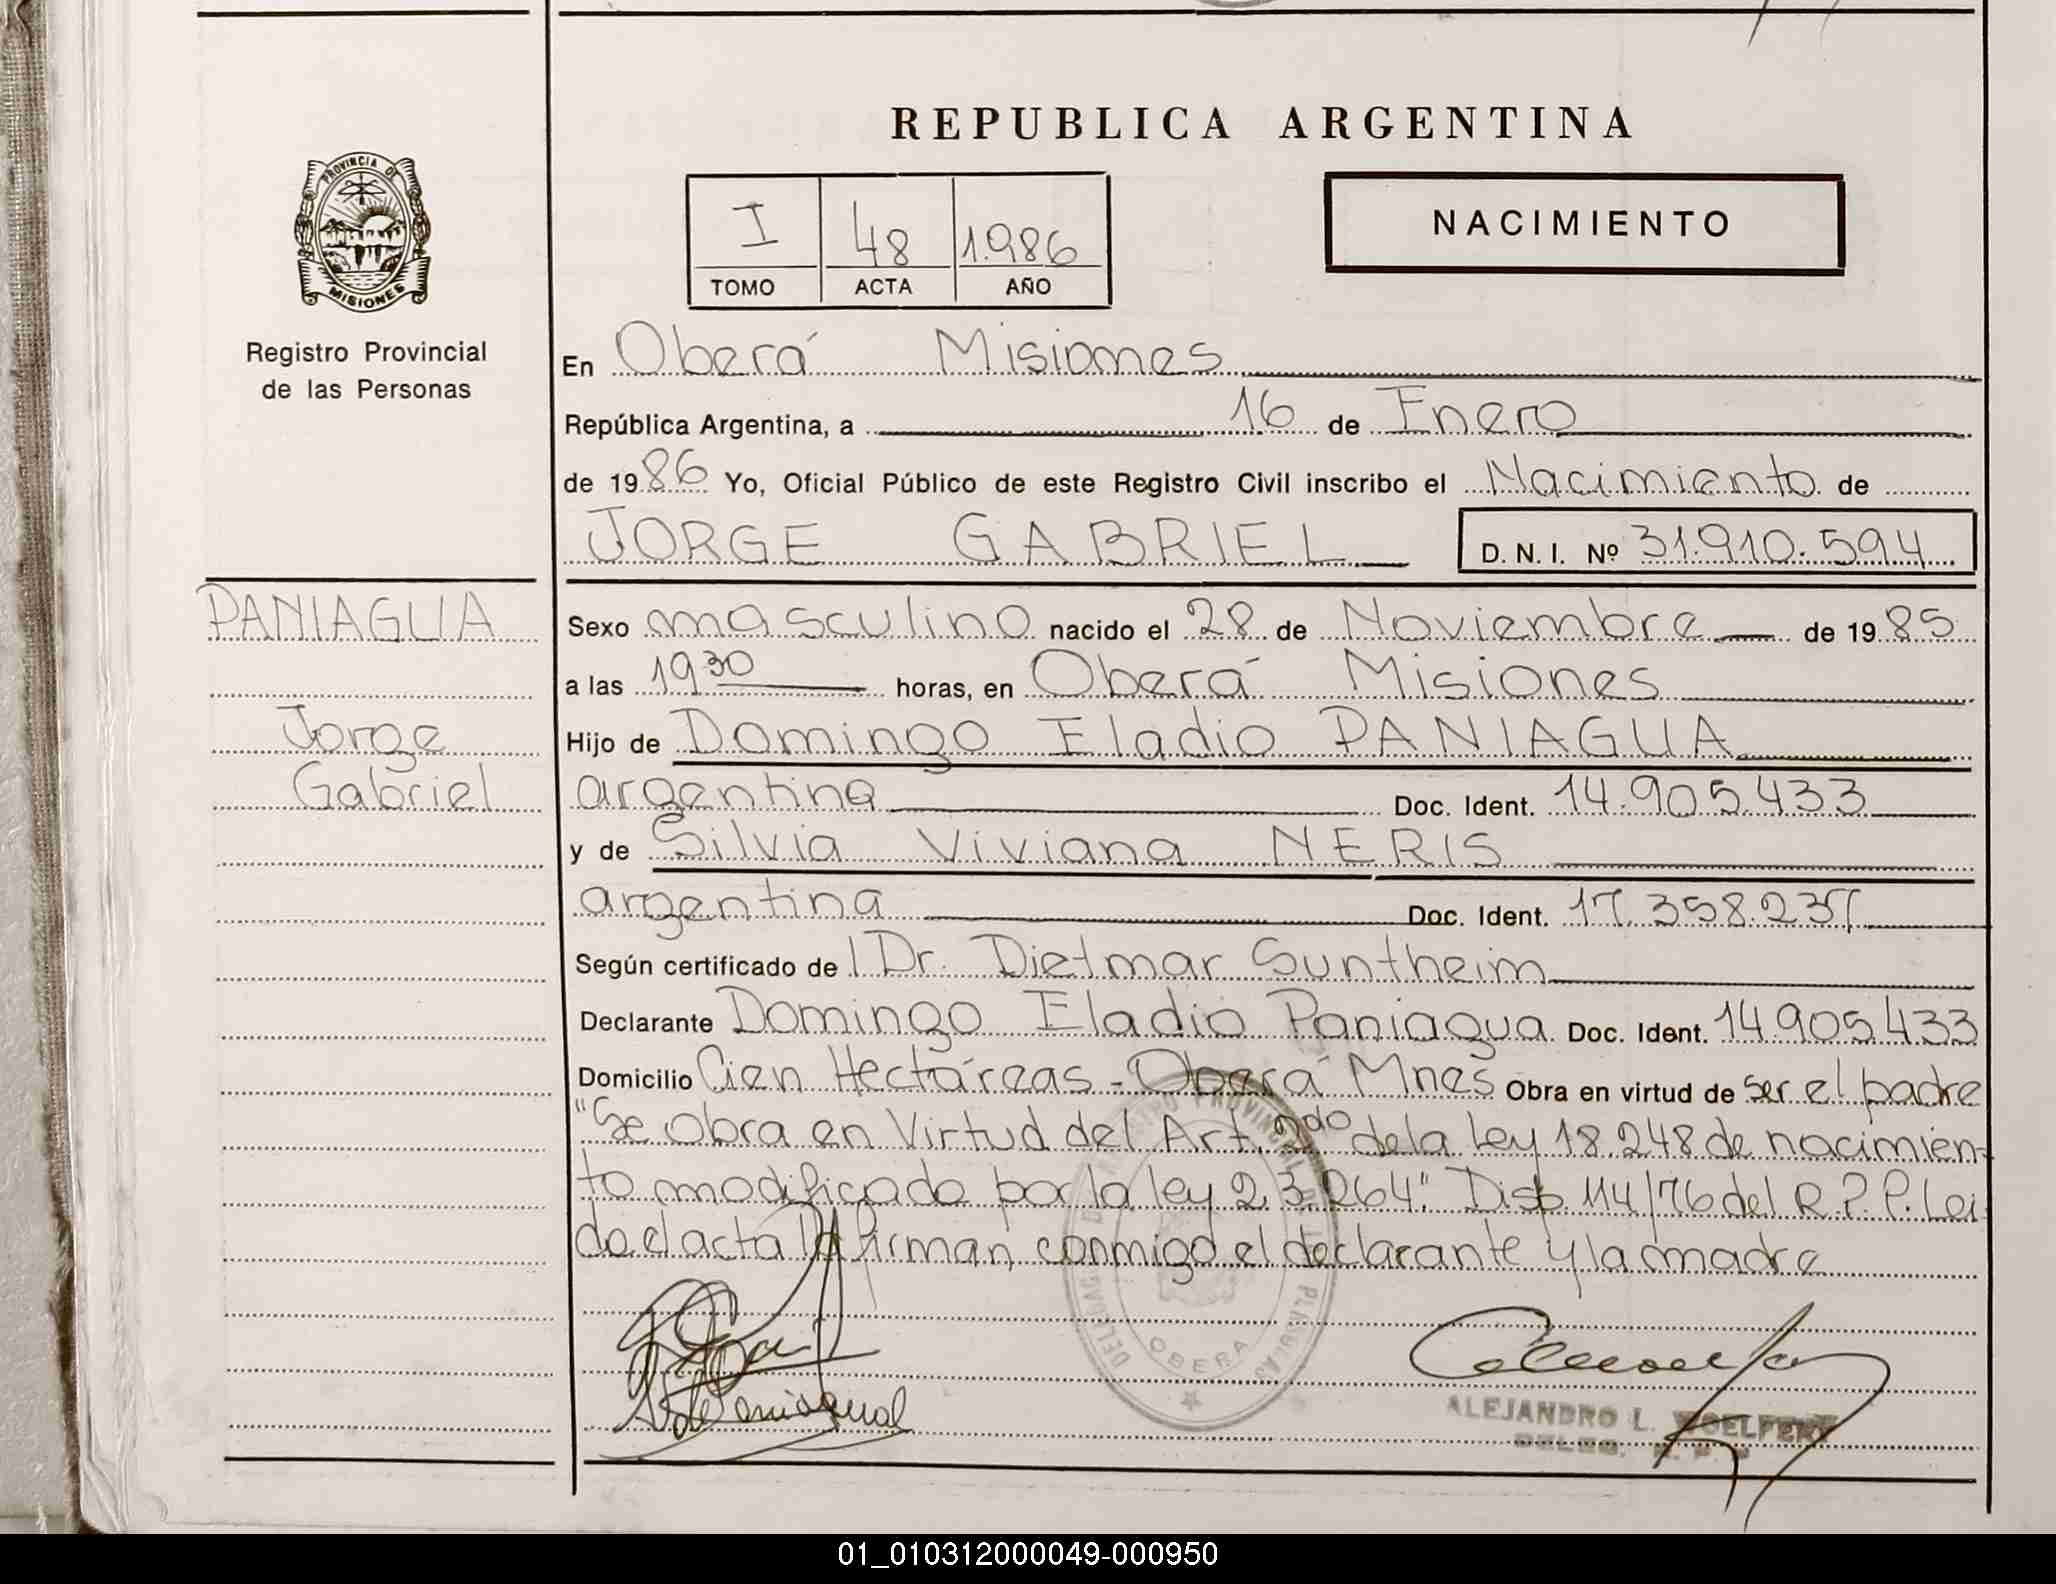 REPUBLICA ARGENTINA
PROVINCIA DE
MISIONES
Registro Provincial
de las Personas
I 48 1.986
TOMO ACTA AÑO
NACIMIENTO
En Oberá Misiones
República Argentina, a 16 de Enero
de 1986 Yo, Oficial Público de este Registro Civil inscribo el Nacimiento de
JORGE GABRIEL
D. N. I. Nº 31.910.594
PANIAGUA
Jorge
Gabriel
Sexo masculino nacido el 28 de Noviembre de 1985
a las 19 30 horas, en Oberá Misiones
Hijo de Domingo Eladio PANIAGUA
argentina Doc. Ident. 14.905.433
y de Silvia Viviana NERIS
argentina Doc. Ident. 17.358.237
Según certificado del Dr. Dietmar Suntheim
Declarante Domingo Eladio Paniagua Doc. Ident. 14.905.433
Domicilio Cien Hectáreas - Oberá Mnes Obra en virtud de ser el padre
"Se obra en Virtud del Art. 2do de la Ley 18.248 de nacimien-
to modificado por la ley 23.264". Disp. 114/76 del R.P.P. Lei-
do el acta la firman conmigo el declarante y la madre
OBERA
ALEJANDRO L.
DELEG. R. P. P.
01_010312000049-000950